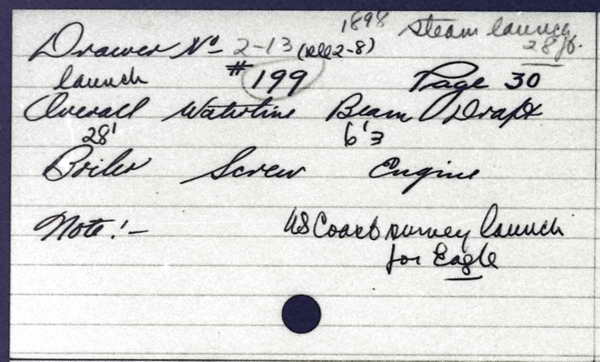 1898 Steam launch
28ft.
Drawer No 2-13 (Rll2-8)
launch #199 Page 30
Overall Waterline Beam Draft
28' 6'3
Boiler Screw Engine
Note:- US Coast survey launch
for Eagle